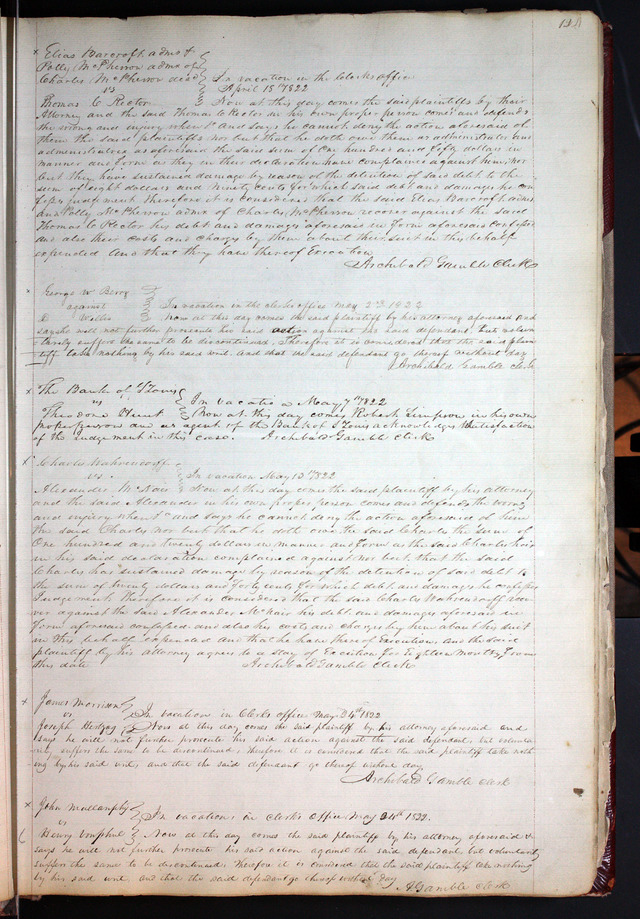 Elias Barcroft admr &
Polly McPherron admx of
Charles McPherron decd
vs
Thomas C Rector
In vacation in the Clerks office
April 15th 1822
Now at this day comes the said plaintiffs by their
Attorney and the said Thomas C Rector in his own proper person comes and defends
the wrong and injury when &c and says he cannot deny the action aforesaid of
them the said plaintiffs nor but that he doth owe them as administrator and
administratrix as aforesaid the said sum of One hundred and fifty dollars in
manner and form as they in their declaration have complained against him; nor
but they have sustained damage by reason of the detention of said debt to the
sum of eight dollars and ninety cents for which said debt and damages he con
fesses judgement therefore it is considered that the said Elias Barcroft admr
and Polly McPherron admx of Charles McPherron recover against the said
Thomas C Rector his debt and damages aforesaid in form aforesaid confessed
and also their costs and charges by them about their suit in this behalf
expended And that they have thereof Execution
Archibald Gamble Clerk
George W Berry
against
D Willis
In vacation in the clerks office may 2nd 1822
now at this day comes the said plaintiff by his attorney aforesaid and
says he will not further prosecute his said action against the said defendant, but volun
tarily suffers the same to be discontinued. Therefore it is considered that the said plain
tiff take nothing by his said writ, and that the said defendant go thereof without day
Archibald Gamble clerk
The Bank of St Louis
vs
Theodore Hunt
In vacation May 7th 1822
Now at this day comes Robert Simpson in his own
proper person and as agent of the Bank of St Louis acknowledges satisfaction
of the judgement in this case. Archibald Gamble Clerk
Charles Wahrendorff
vs
Alexander McNair
In vacation May 13th 1822
Now at this day comes the said plaintiff by his attorney
and the said Alexander in his own proper person comes and defends the wrong
and injury when &c and says he cannot deny the action aforesaid of him
the said Charles nor but that he doth owe the said Charles the sum of
One hundred and twenty dollars in manner and form as the said Charles hath
in his said declaration complained against nor but that the said
Charles has sustained damage by reason of the detention of said debt to
the sum of twenty dollars and forty cents for which debt and damages he confesses
Judgement therefore it is considered that the said Charles Wahrendorff reco
ver against the said Alexander McNair his debt and damages aforesaid in
form aforesaid confessed and also his costs and charges by him about his suit
in this behalf expended and that he have thereof Execution and the said
plaintiff by his attorney agrees to a stay of Execution for Eighteen Months from
this date
Archibald Gamble Clerk
James Morrison
vs
Joseph Hertzog
In vacation in Clerks office May 24th 1822
Now at this day comes the said plaintiff by his attorney aforesaid and
says he will not further prosecute his said action against the said defendant, but volunta
rily suffers the same to be discontinued, therefore it is considered that the said plaintiff take noth
ing by his said writ, and that the said defendant go thereof without day
Archibald Gamble Clerk
John Mullanphy
vs
Henry
In vacation in clerks office May 24th 1822.
Now at this day comes the said plaintiff by his attorney aforesaid &
says he will not further prosecute his said action against the said defendant but voluntarily
suffers the same to be discontinued. Therefore it is considered that the said plaintiff take nothing
by his said writ and that the said defendant go thereof without day
A Gamble clerk